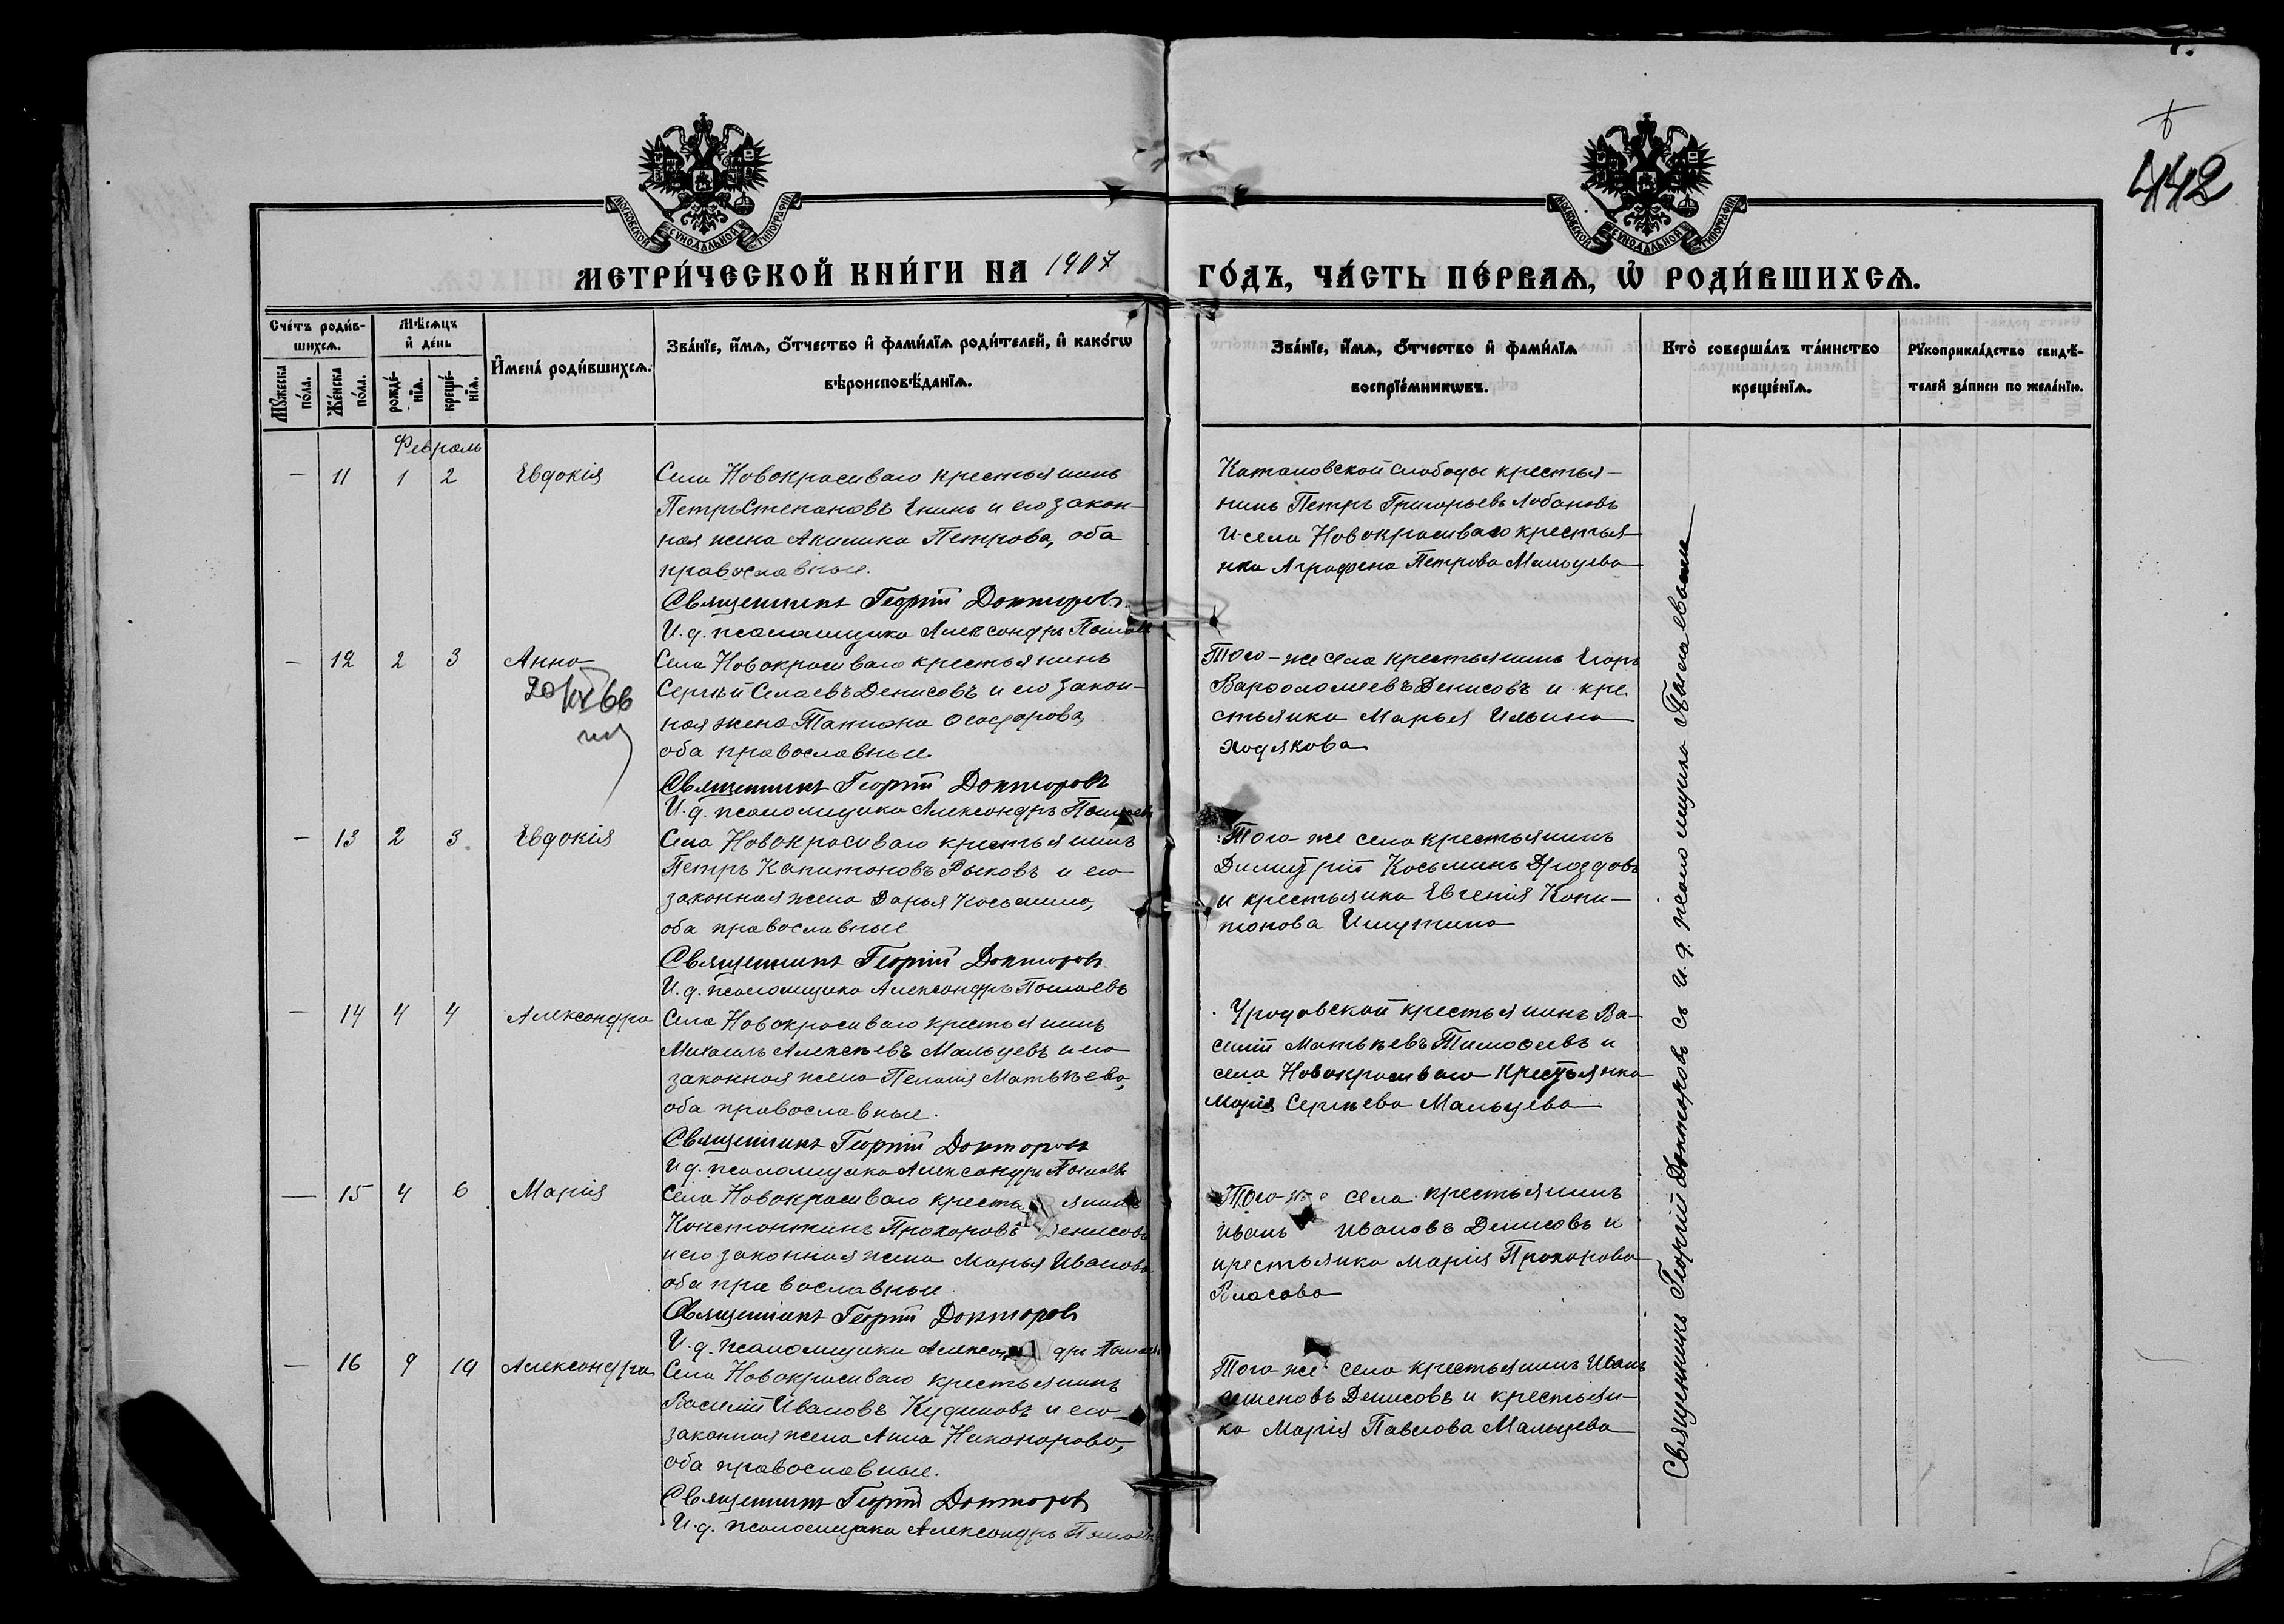 442
МОСКОВСКОЙ СУНОДАЛЬНОЙ ТИПОГРАФІИ
МОСКОВСКОЙ СУНОДАЛЬНОЙ ТИПОГРАФІИ
МЕТРИ́ЧЕСКОЙ КНИ́ГИ НА 1907
ГО́ДЪ, ЧА́СТЬ ПЕ́РВАѦ, Ѡ҆ РОДИ́ВШИХСѦ.
Сче́тъ роди́в-
шихсѧ.
Мꙋ́жеска по́ла.
Же́нска по́ла.
Мѣ́сѧцъ
и҆ де́нь
рожде́-
нїѧ.
креще́-
нїѧ.
И҆мена̀ роди́вшихсѧ.
Зва́нїе, и҆́мѧ, ѻ҆́тчество и҆ фами́лїѧ роди́телей, и҆ како́гѡ
вѣроисповѣ́данїѧ.
Зва́нїе, и҆́мѧ, ѻ҆́тчество и҆ фами́лїѧ
воспрїе́мникѡвъ.
Кто̀ соверша́лъ та́инство
креще́нїѧ.
Рꙋкоприкла́дство свидѣ́-
телей за́писи по жела́нїю.
Февраль
— 11 1 2 Евдокія
Села Новокрасиваго крестьянинъ
Петръ Степановъ Енинъ и его закон-
ная жена Акилина Петрова, оба
православные.
Священникъ Георгій Докторовъ.
И. д. псаломщика Александръ
Катановской слободы крестья-
нинъ Петръ Григорьевъ Лобановъ
и села Новокрасиваго крестья-
нка Аграфена Петрова Мальцева
— 12 2 3 Анна
20/IX 66
Села Новокрасиваго крестьянинъ
Сергѣй Денисовъ и его закон-
ная жена Татиана Ѳеодорова,
оба православные.
Священникъ Георгій Докторовъ
И. д. псаломщика Александръ
Того-же села крестьянинъ Егоръ
Варѳоломеевъ Денисовъ и кре-
стьянка Марья Ильина
Ходякова
— 13 2 3 Евдокія
Села Новокрасиваго крестьянинъ
Петръ Капитоновъ Рыковъ и его
законная жена Дарья Косьмина,
оба православные
Священникъ Георгій Докторовъ
И. д. псаломщика Александръ
Того-же села крестьянинъ
Димитрій Косьминъ Дроздовъ
и крестьянка Евгенія Капи-
тонова Ишутина
— 14 4 4 Александра
Села Новокрасиваго крестьянинъ
Михаилъ Алексѣевъ Мальцевъ и его
законная жена Пелагія Матвѣева,
оба православные.
Священникъ Георгій Докторовъ
И д. псаломщика Александръ
Уродовской крестьянинъ Ва-
силій Матвѣевъ Тимоѳеевъ и
села Новокрасиваго крестьянка
Марія Сергѣева Мальцева
— 15 4 6 Марія
Села Новокрасиваго крестьянинъ
Константинъ Прохоровъ Денисовъ
и его законная жена Марья Иванова
оба православные
Священникъ Георгій Докторовъ
И. д. псаломщика Александръ
Того-же села крестьянинъ
Иванъ Ивановъ Денисовъ и
крестьянка Марія Прохорова
Власова
— 16 9 19 Александра
Села Новокрасиваго крестьянинъ
Василій Ивановъ Кудиновъ и его
законная жена Анна Никонорова,
оба православные.
Священникъ Георгій Докторовъ
И. д. псаломщика Александръ
Того-же села крестьянинъ Иванъ
Семеновъ Денисовъ и крестьян-
ка Марія Павлова Мальцева
Священникъ Георгій Докторовъ съ и. д. псаломщика